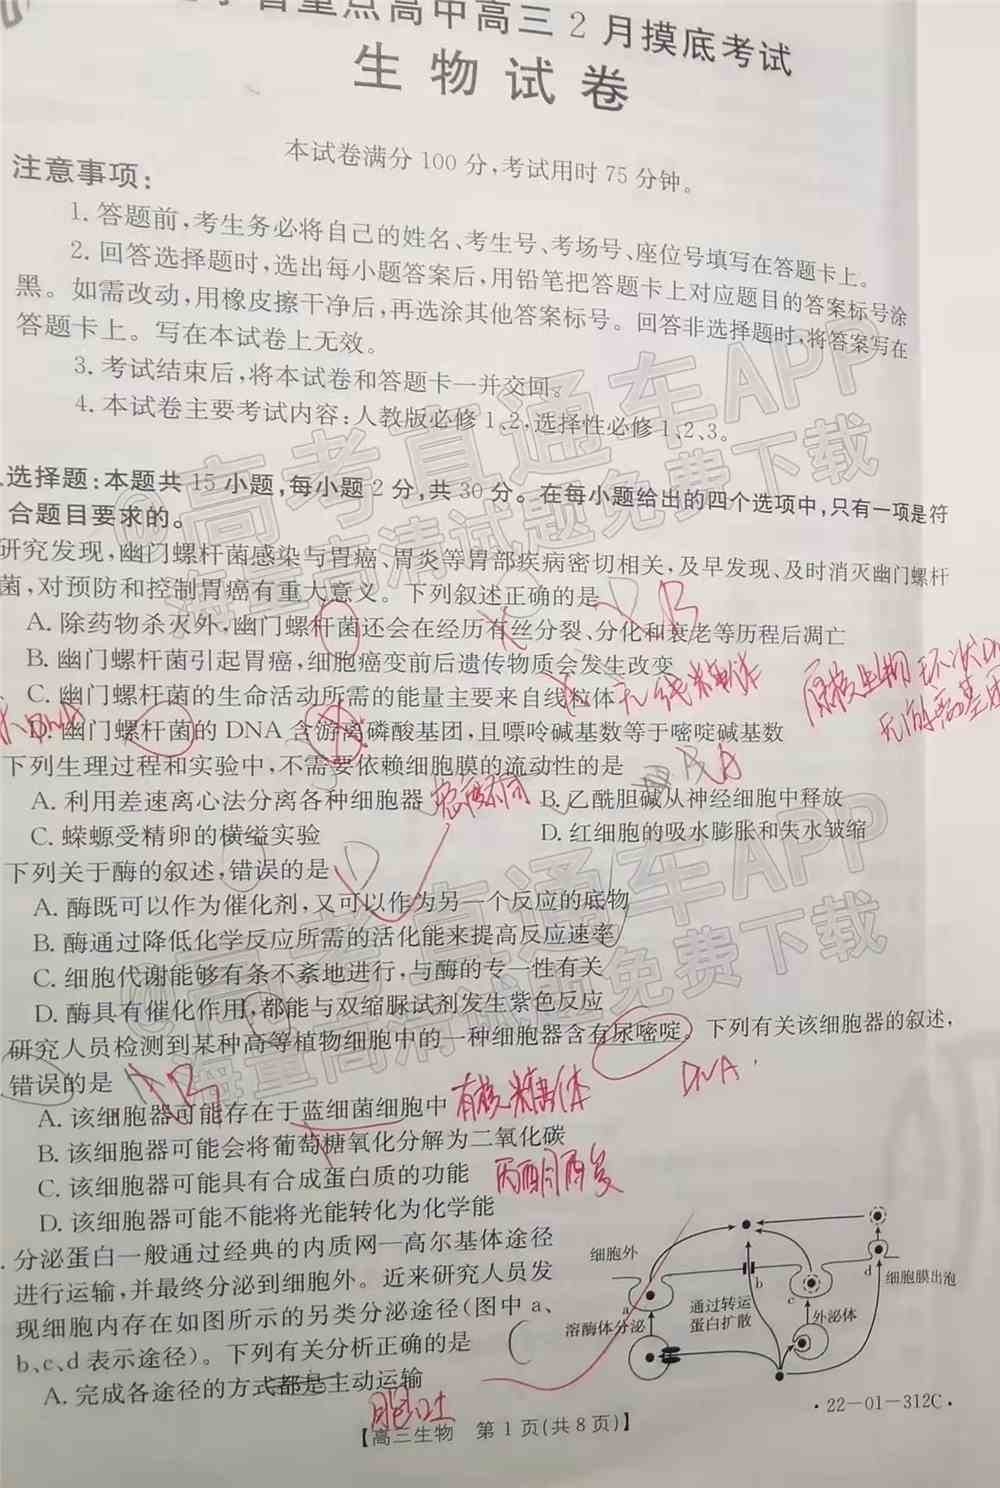 省重点高中高三2月摸底考试
生物试卷
本试卷满分100分,考试用时75分钟。
注意事项:
1. 答题前,考生务必将自己的姓名、考生号、考场号、座位号填写在答题卡上。
2. 回答选择题时,选出每小题答案后,用铅笔把答题卡上对应题目的答案标号涂
黑。如需改动,用橡皮擦干净后,再选涂其他答案标号。回答非选择题时,将答案写在
答题卡上。写在本试卷上无效。
3. 考试结束后,将本试卷和答题卡一并交回。
4. 本试卷主要考试内容:人教版必修1、2,选择性必修1、2、3。
选择题:本题共15小题,每小题2分,共30分。在每小题给出的四个选项中,只有一项是符
合题目要求的。
研究发现,幽门螺杆菌感染与胃癌、胃炎等胃部疾病密切相关,及早发现、及时消灭幽门螺杆
菌,对预防和控制胃癌有重大意义。下列叙述正确的是
B
A. 除药物杀灭外,幽门螺杆菌还会在经历有丝分裂、分化和衰老等历程后凋亡
B. 幽门螺杆菌引起胃癌,细胞癌变前后遗传物质会发生改变
C. 幽门螺杆菌的生命活动所需的能量主要来自线粒体
无线粒体
原核生物环状DN
D. 幽门螺杆菌的DNA含游离磷酸基团,且嘌呤碱基数等于嘧啶碱基数
下列生理过程和实验中,不需要依赖细胞膜的流动性的是
A
A. 利用差速离心法分离各种细胞器
密度不同
B. 乙酰胆碱从神经细胞中释放
C. 蝾螈受精卵的横缢实验
D. 红细胞的吸水膨胀和失水皱缩
下列关于酶的叙述,错误的是
D
A. 酶既可以作为催化剂,又可以作为另一个反应的底物
B. 酶通过降低化学反应所需的活化能来提高反应速率
C. 细胞代谢能够有条不紊地进行,与酶的专一性有关
D. 酶具有催化作用,都能与双缩脲试剂发生紫色反应
研究人员检测到某种高等植物细胞中的一种细胞器含有尿嘧啶。下列有关该细胞器的叙述,
错误的是
B
DNA
A. 该细胞器可能存在于蓝细菌细胞中
有核糖体
B. 该细胞器可能会将葡萄糖氧化分解为二氧化碳
C. 该细胞器可能具有合成蛋白质的功能
丙酮酸
D. 该细胞器可能不能将光能转化为化学能
分泌蛋白一般通过经典的内质网—高尔基体途径
进行运输,并最终分泌到细胞外。近来研究人员发
现细胞内存在如图所示的另类分泌途径(图中a、
b、c、d表示途径)。下列有关分析正确的是
C
A. 完成各途径的方式都是主动运输
胞吐
细胞外
a
b
c
d
细胞膜出泡
溶酶体分泌
通过转运
蛋白扩散
外泌体
【高三生物 第1页(共8页)】
·22-01-312C·
@高考直通车APP
海量高清试题免费下载
@高考直通车APP
海量高清试题免费下载